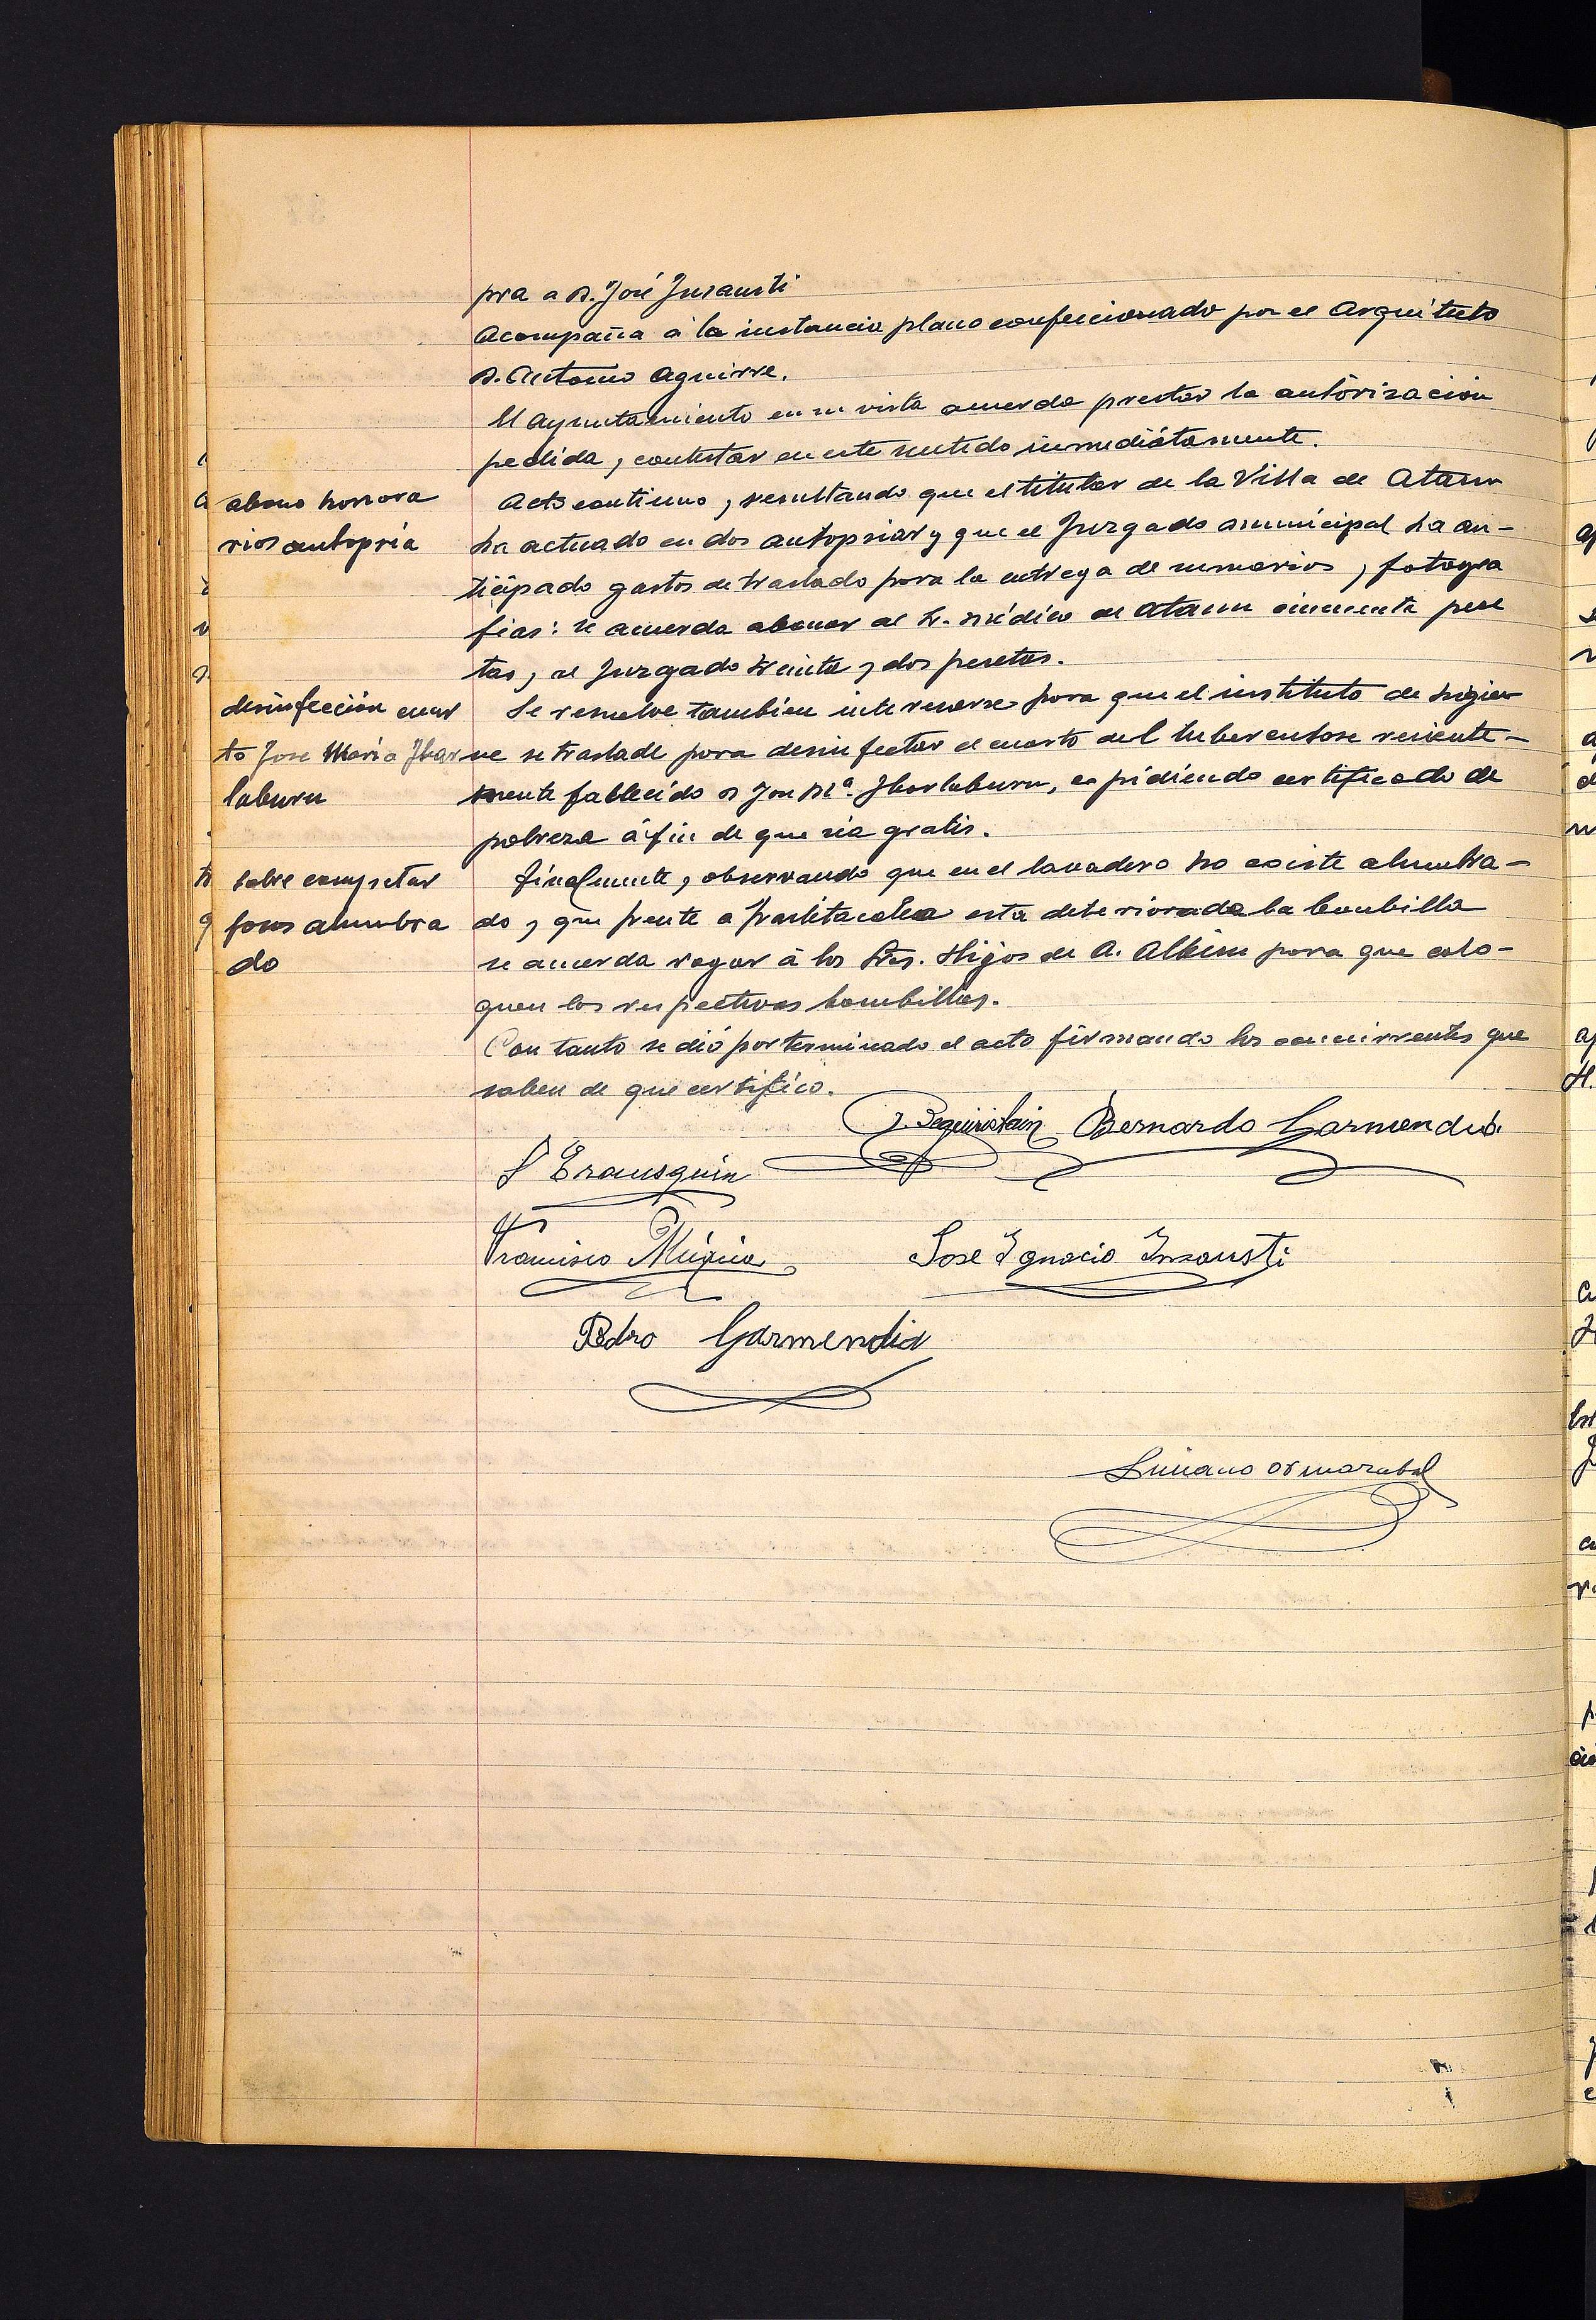 pra a D. José Insausti
Acompaña á la instancia plano confeccionado por el Arquitecto
D. Antonio Aguirre.
El Ayuntamiento en su vista acuerda prestar la autorizacion
pedida, contestar en este sentido inmediatamente.
abono honora
rios autopsia
Acto continuo, resultando que el titular de la Villa de Ataun
ha actuado en dos autopsias y que el Juzgado municipal ha an-
ticipado gastos de traslado para la entrega de sumarios, fotogra
fias: se acuerda abonar al Sr. médico de Ataun cincuenta pese
tas, al Juzgado treinta y dos pesetas.
desinfección cuar
to Jose Maria Ibar
laburu
Se resuelve tambien interesarse para que el instituto de higie
ne se traslade para desinfectar el cuarto del tuberculoso reciente-
mente fallecido D Jose Mª. Ibarlaburu, expidiendo certificado de
pobreza á fin de que sia gratis.
sobre completar
focos alumbra
do
finalmente, observando que en el lavadero no existe alumbra-
do, que frente a esta deteriorada la bombilla
se acuerda rogar á los Sres. Hijos de A. Albisu para que colo-
quen las respectivas bombillas.
Con tanto se dió por terminado el acto firmando los concurrentes que
saben de que certifico.
J. Beguiristain Bernardo Garmendia
Erausquin
Francisco Múgica Jose Ignacio Insausti
Pedro Garmendia
Ormazabal